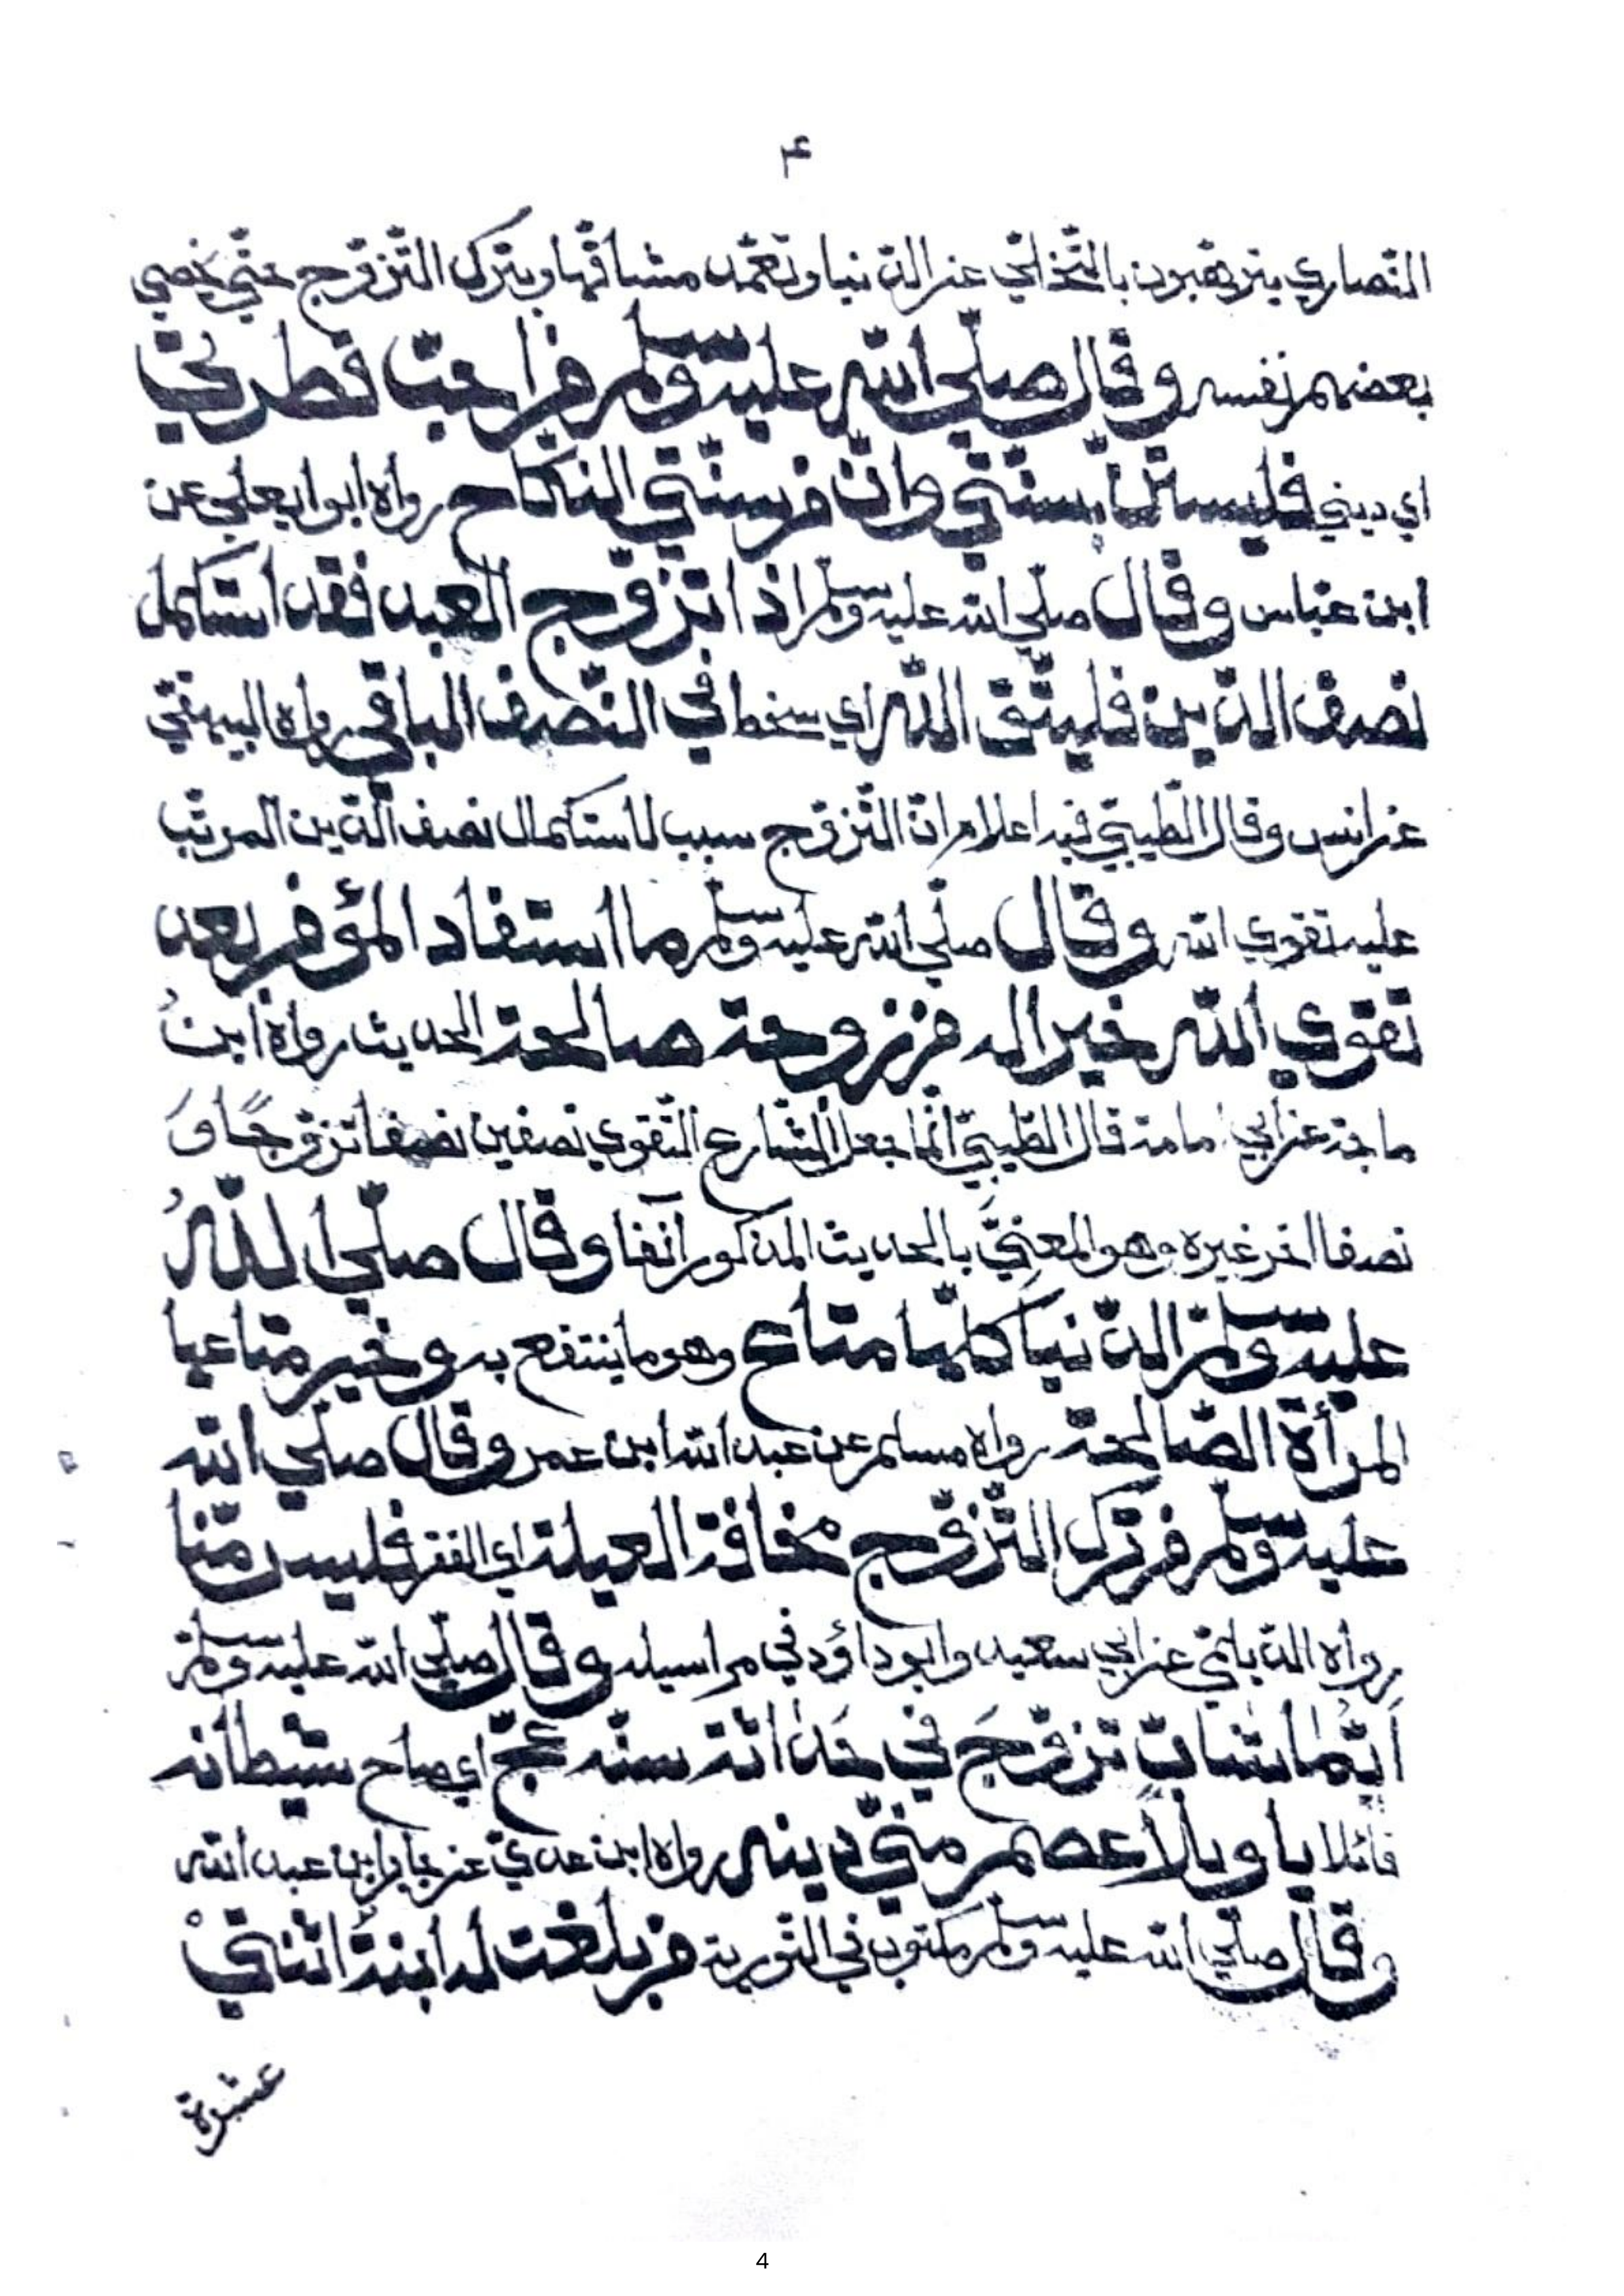 ۴
النّصاري يترهّبون بالتّخلّي عن الدّنيا وتعمّد مشاقّها ويترك التّزوّج حتّي يخصي
بعضهم نفسه وقال صلّي اللّه عليه وسلم من احبّ فطرتي
اي ديني فليستنّ بسنّتي وانّ من سنّتي النكاح رواه ابوا يعلي عن
ابن عبّاس وقال صلّي اللّه عليه وسلم اذا تزوّج العبد فقد استكمل
نصف الدّين فليتّق اللّه اي سخطه في النّصف الباقي رواه البيهقيّ
عن انس وقال الطّيبيّ فيه اعلام انّ التّزوّج سبب لاستكمال نصف الدّين المرتّب
عليه تقوي اللّه وقال صلّي اللّه عليه وسلم ما استفاد المؤمن بعد
تقوي اللّه خيرا له من زوجة صالحة الحديث رواه ابنُ
ماجة عن ابي امامة قال الطّيبيّ انّما جعل الشّارع التّقوي نصفين نصفا تزوّجًا وَ
نصفا اخر غيره وهو المعنيُّ بالحديث المذكور آنفا وقال صلّي اللّهُ
عليه وسلم الدّنيا كلّها متاع وهو ما ينتفع به وخير متاعها
المرأة الصّالحة رواه مسلم عن عبد اللّه ابن عمر وقال صلّي اللّه
عليه وسلم من ترك التّزوّج مخافة العيلة اي الفقر فليس منّا
رواه الدّيلميّ عن ابي سعيد وابو داؤد في مراسيله وقال صلّي اللّه عليه وسلم
اَيّما شابّ تزوّجَ في حَداثة سنّه عجّ اي صاح شيطانه
قائلا يا ويلاَ عصم منّي دينه رواه ابن عديّ عن جابر ابن عبد اللّه
وقال صلّي اللّه عليه وسلم مكتوب في التّورية من بلغت له ابنةُ اثنتيْ
عشرة
4